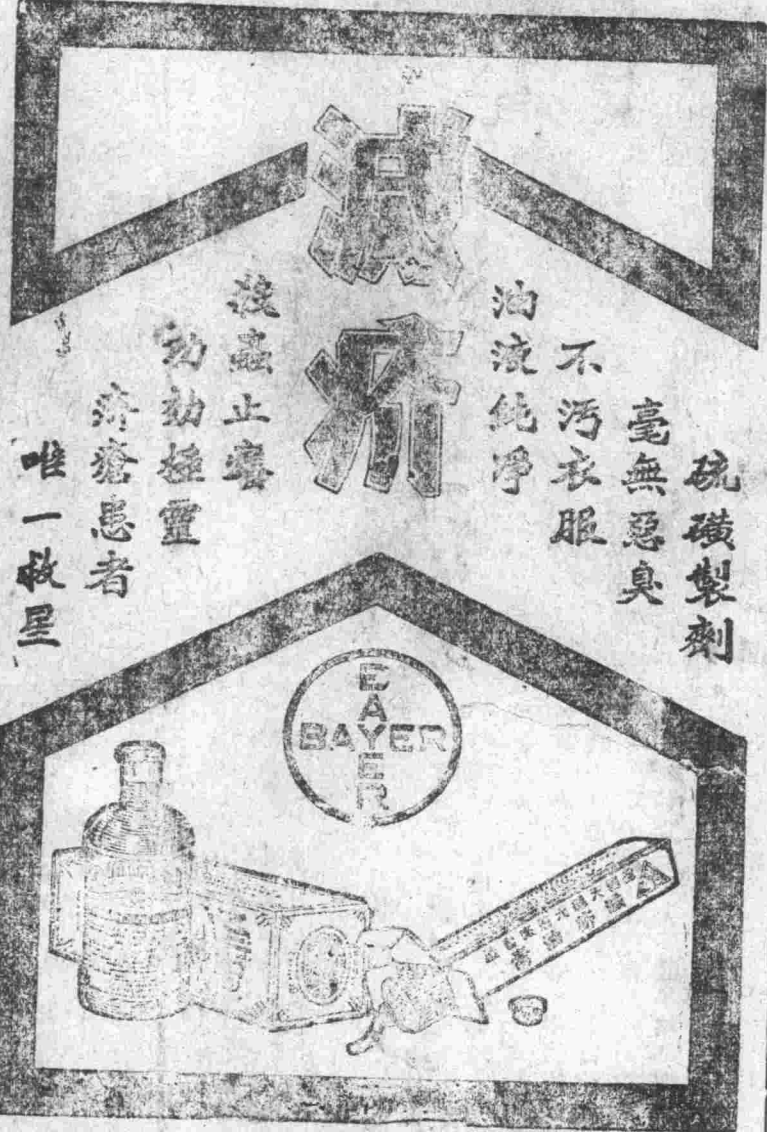 減疥
硫磺製劑
毫無惡臭
不污衣服
油液純淨
殺蟲止癢
功効極靈
疥瘡患者
唯一救星
BAYER
BAYER